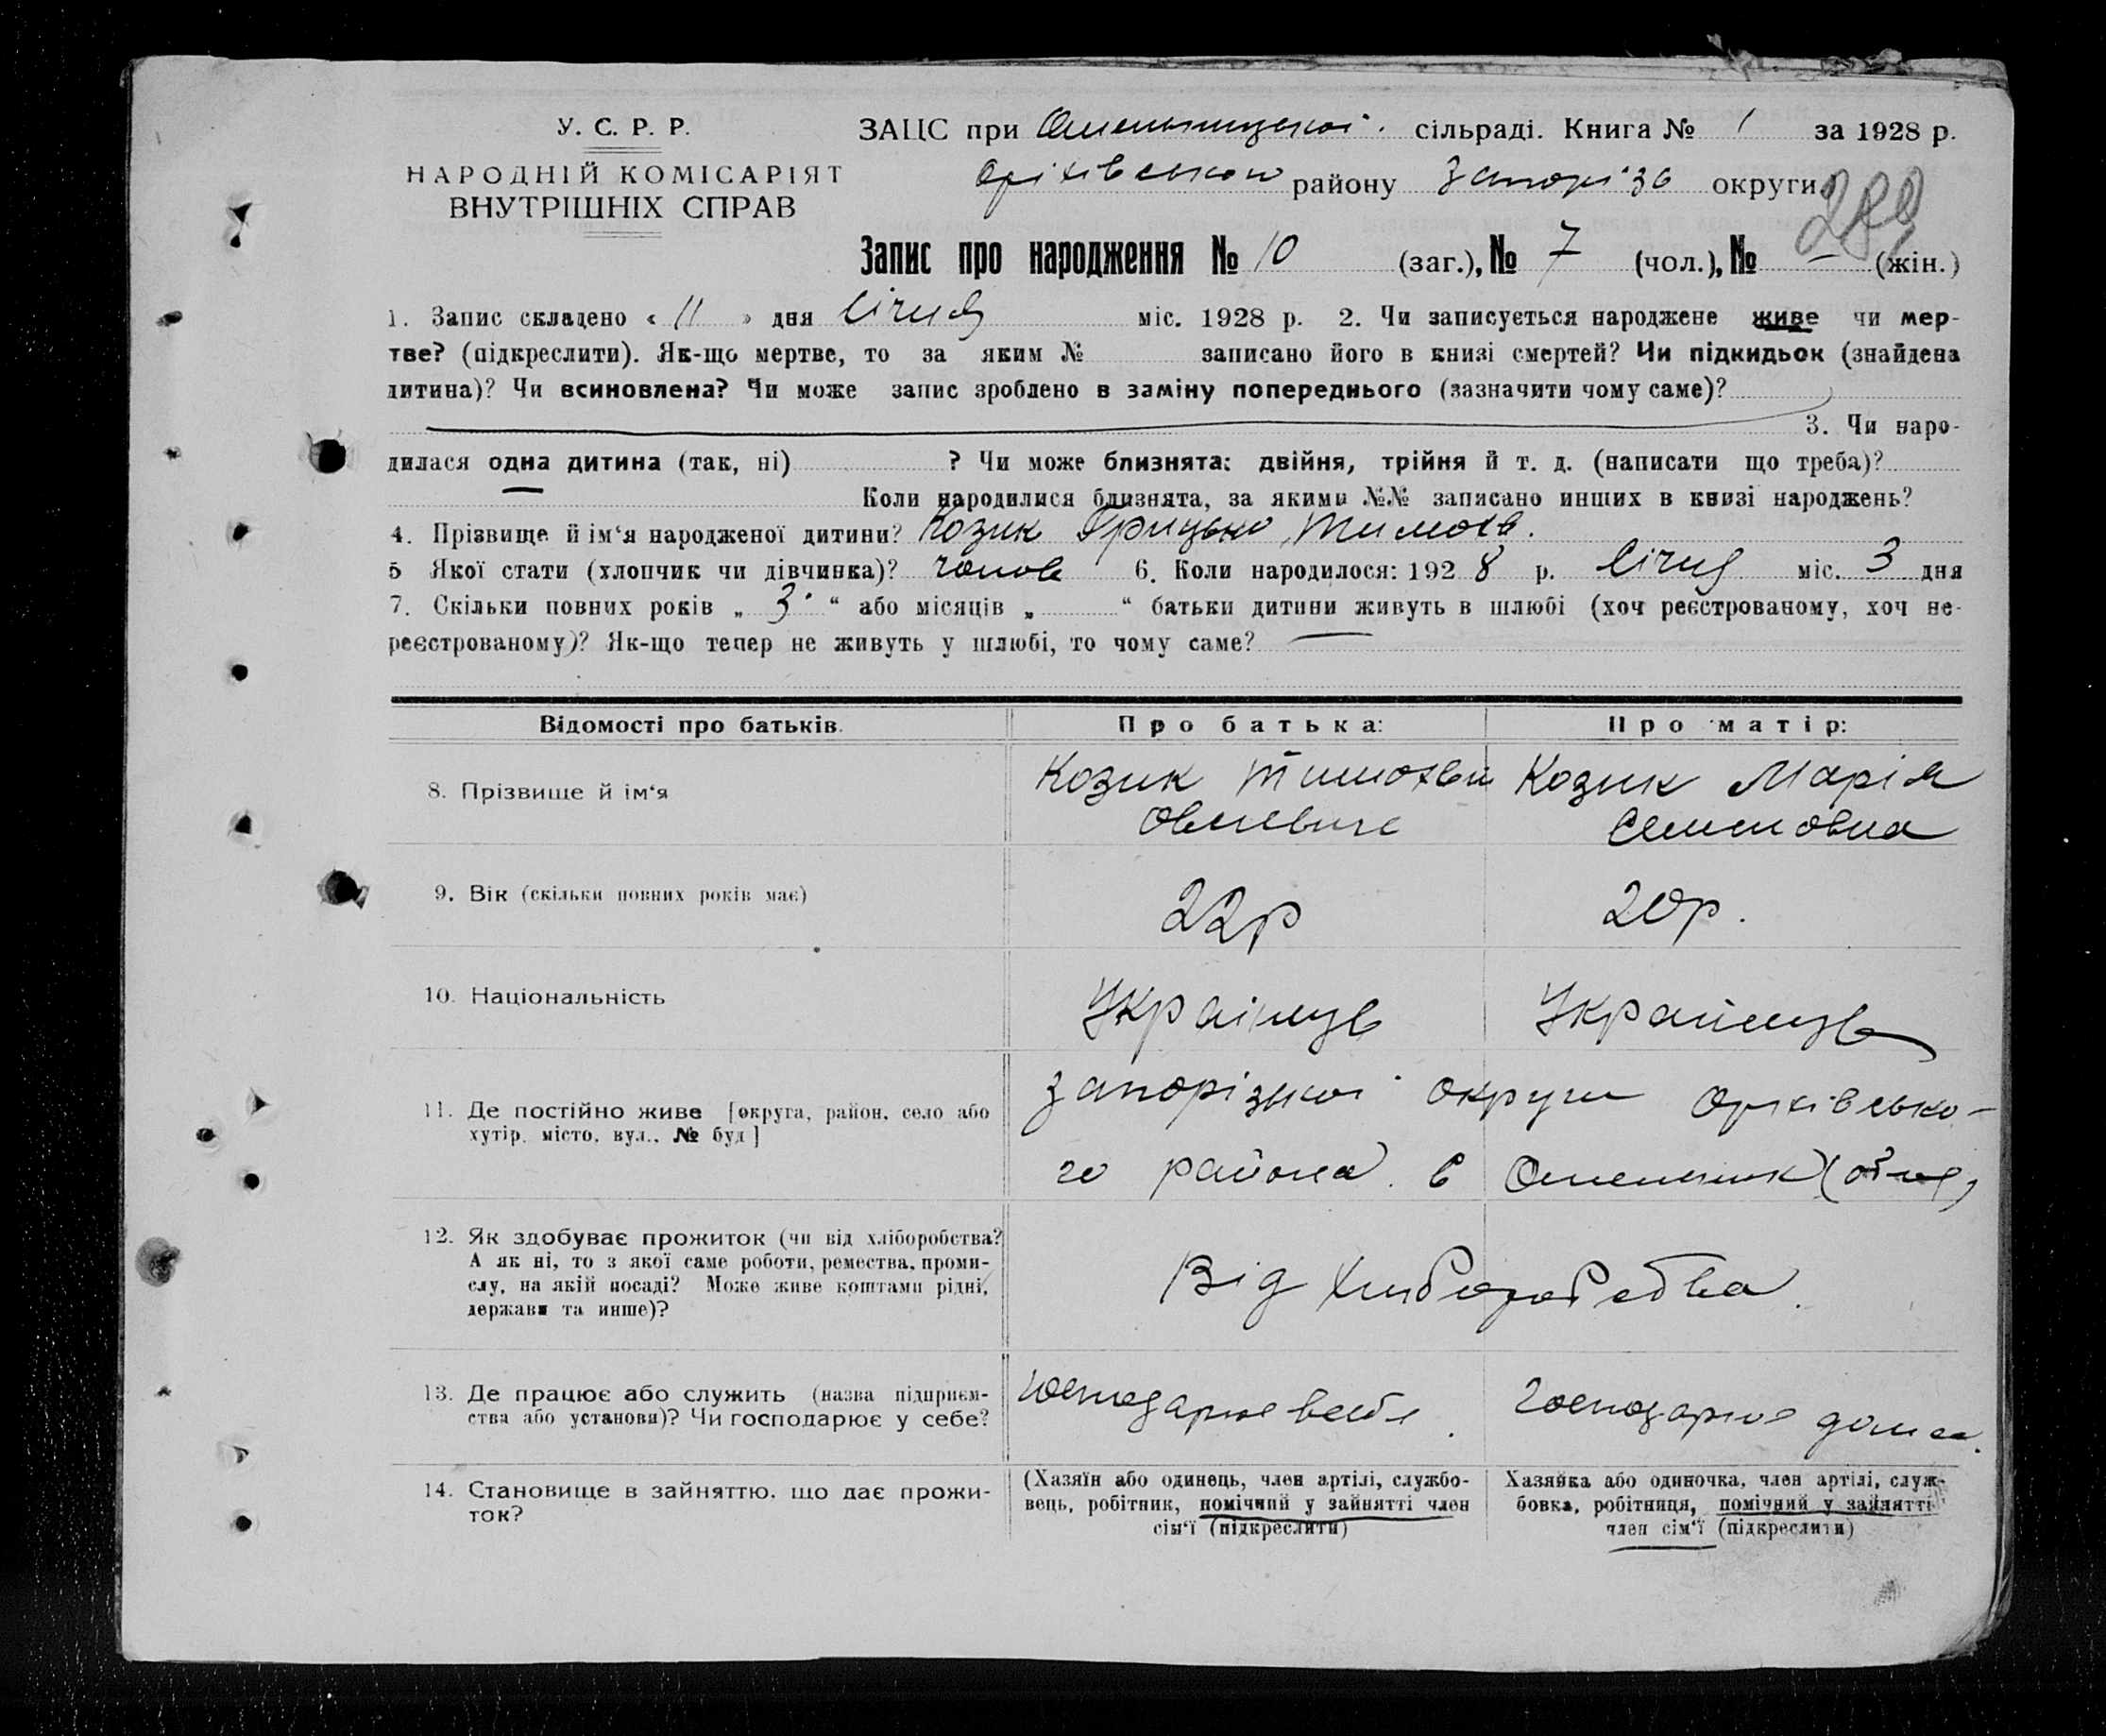 У. С. Р. Р.
НАРОДНІЙ КОМІСАРІЯТ
ВНУТРІШНІХ СПРАВ
ЗАЦС при Омельницькоі сільраді. Книга № 1 за 1928 р.
Оріхівського району Запоріз округи
Запис про народження № 10 (заг.), № 7 (чол.), № — (жін.)
1. Запис складено « 11 » дня Січня міс. 1928 р. 2. Чи записується народжене живе чи мер-
тве? (підкреслити). Як-що мертве, то за яким № записано його в книзі смертей? Чи підкидьок (знайдена
дитина)? Чи всиновлена? Чи може запис зроблено в заміну попереднього (зазначити чому саме)?
3. Чи наро-
дилася одна дитина (так, ні) ? Чи може близнята: двійня, трійня й т. д. (написати що треба)?
Коли народилися близнята, за якими №№ записано инших в книзі народжень?
4. Прізвище й ім‘я народженої дитини? Козик Грицько Тимохв.
5 Якої стати (хлопчик чи дівчинка)? чолов 6. Коли народилося: 1928 р. Січня міс. 3 дня
7. Скільки повних років „ 3 “ або місяців „ “ батьки дитини живуть в шлюбі (хоч реєстрованому, хоч не-
реєстрованому)? Як-що тепер не живуть у шлюбі, то чому саме? —
Відомості про батьків.
Про батька:
Про матір:
8. Прізвище й ім‘я
Козик Тимохвій
Козик Марія
Семеновна
9. Вік (скільки повних років має)
22р
20р.
10. Національність
Украінцв
Украйнцв
11. Де постійно живе [округа, район, село або
хутір, місто, вул., № буд]
Запорізькоі округи Оріхівсько-
го района с Омельник
12. Як здобуває прожиток (чи від хліборобства?
А як ні, то з якої саме роботи, ремества, проми-
слу, на якій посаді? Може живе коштами рідні,
держави та инше)?
Від хліборобства.
13. Де працює або служить (назва підприєм-
ства або установи)? Чи господарює у себе?
господарює всебе.
господарює дома.
14. Становище в зайняттю, що дає прожи-
ток?
(Хазяїн або одинець, член артілі, службо-
вець, робітник, помічний у зайнятті член
сім‘ї (підкреслити)
Хазяйка або одиночка, член артілі, служ-
бовка, робітниця, помічний у зайнятті
член сім‘ї (підкреслити)